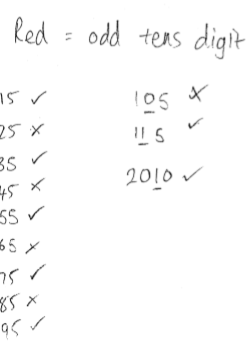 Red = odd tens digit
15 ✓
25 ×
35 ✓
45 ×
55 ✓
65 ×
75 ✓
85 ×
95 ✓
105 ×
115 ✓
2010 ✓